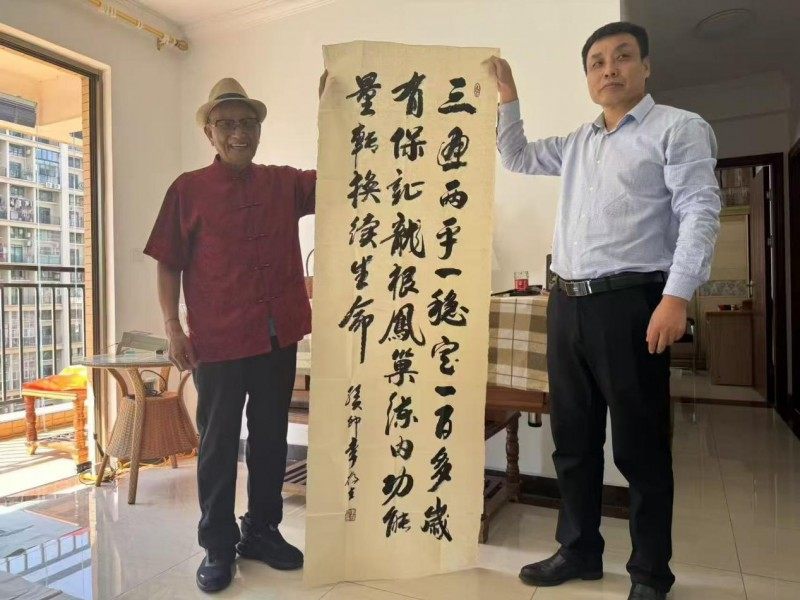 三通两平一稳定一百多歲
有保证龍根鳳巢练内功能
量转换续生命
癸卯